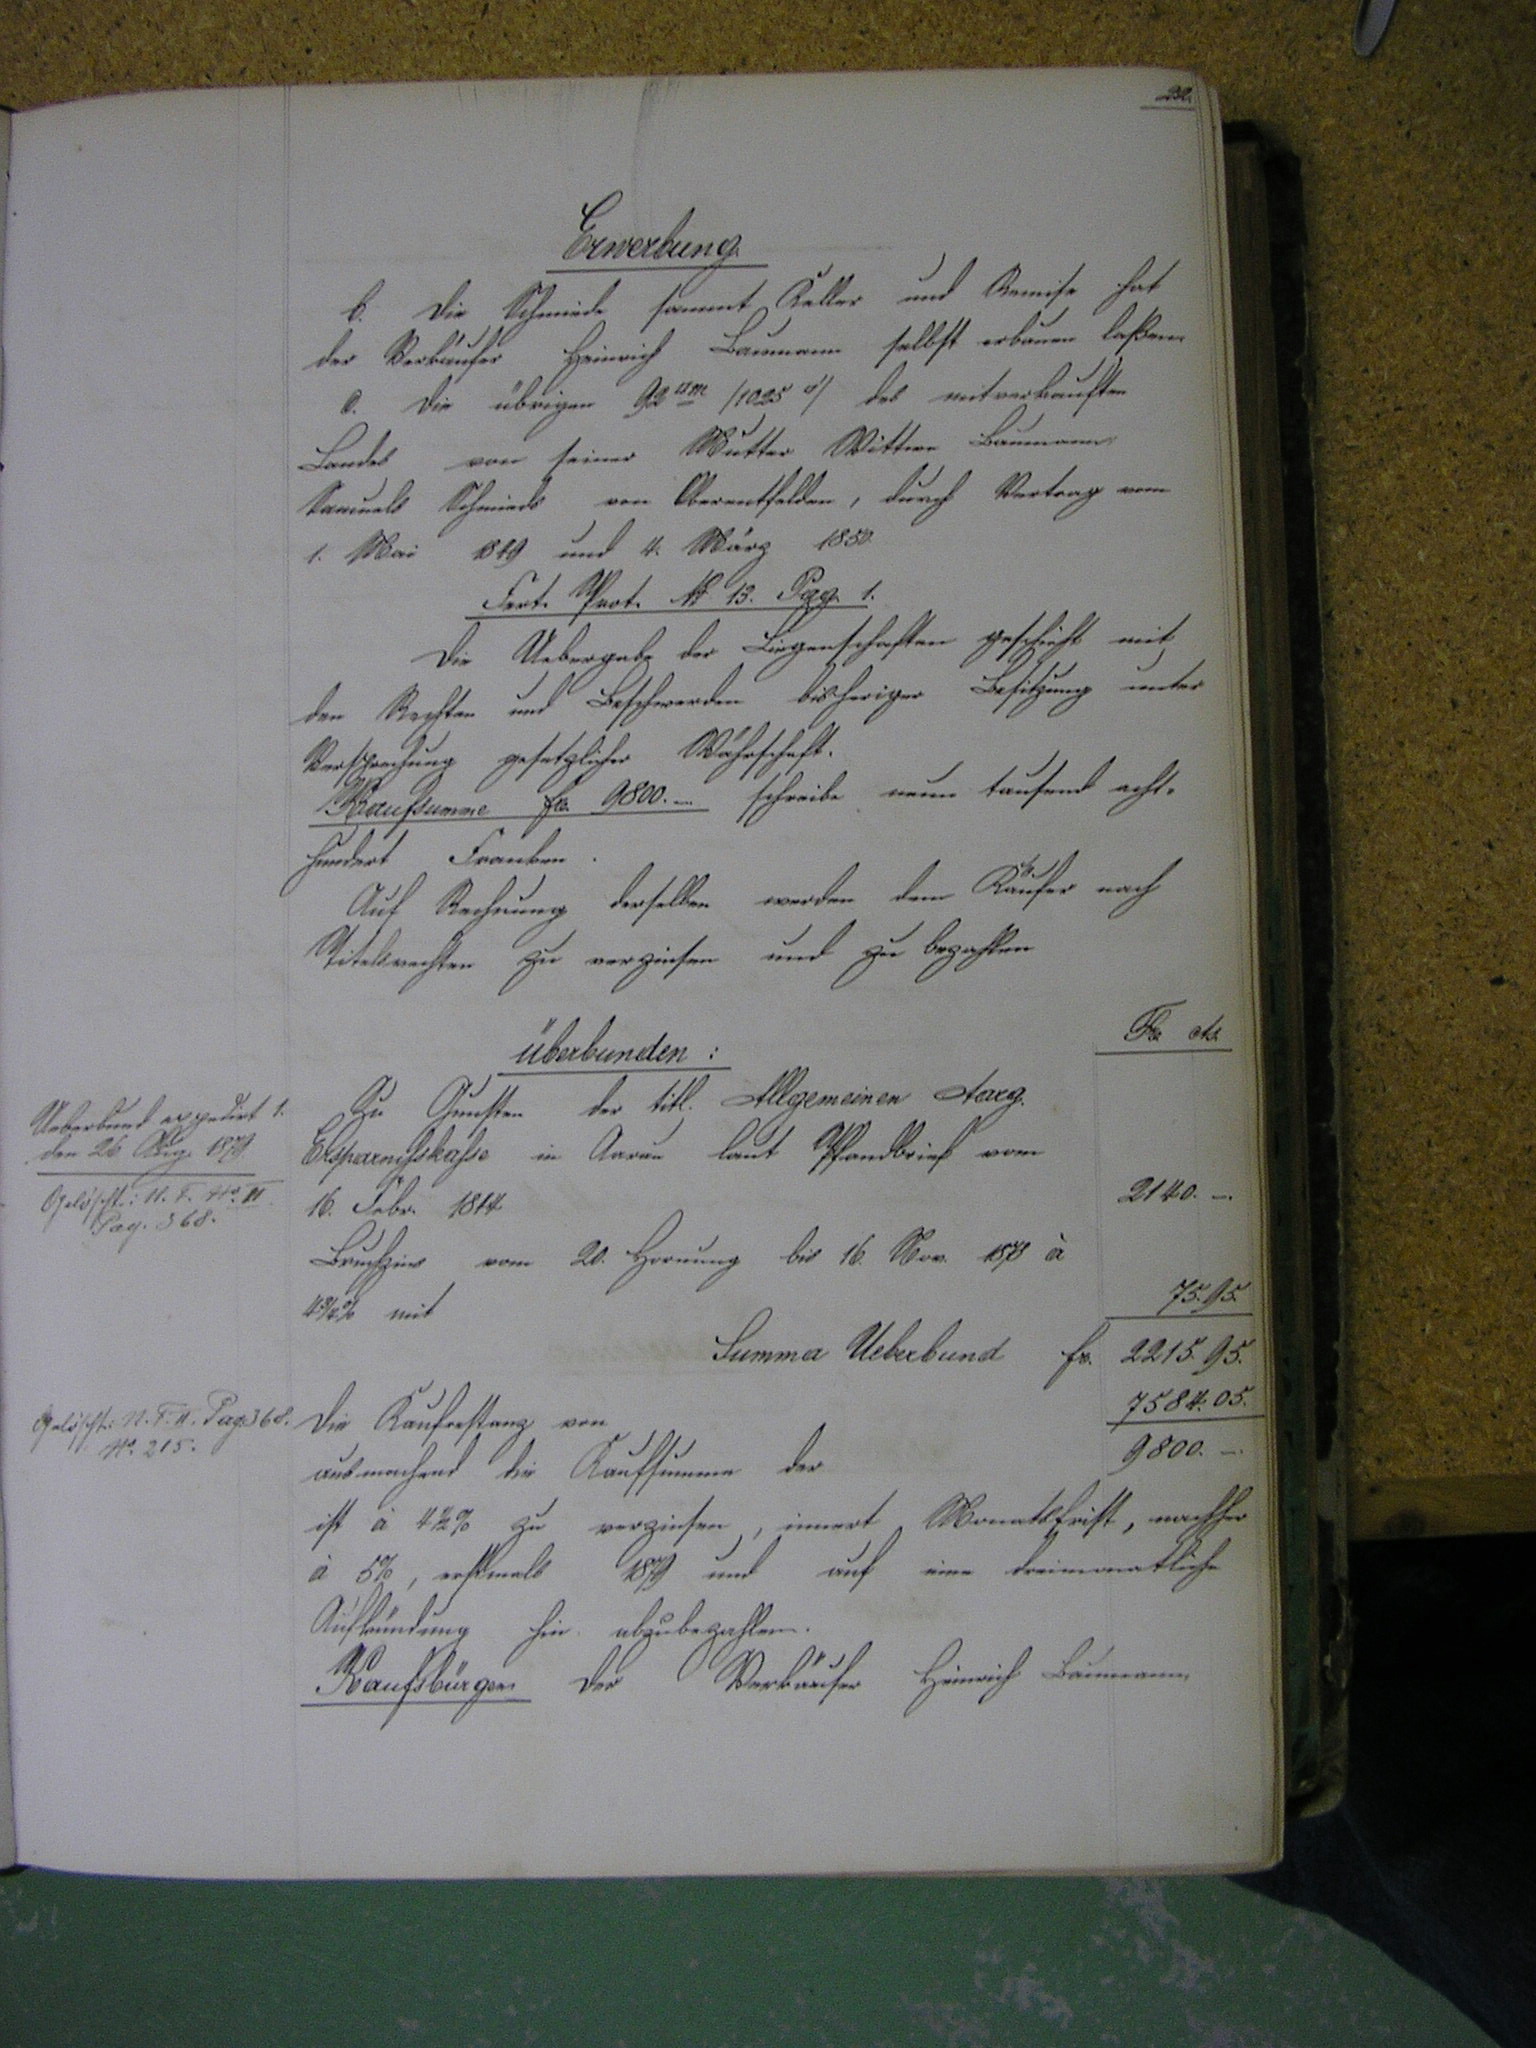 22.
Erwerbung
b. Die Schmiede sammt Keller und Remise hat
der Verkäufer Heinrich Baumann selbst erbauen laßen.
c. Die übrigen 92 □m /1025 □'/ des mitverkauften
Landes von seiner Mutter Wittwe Baumann
Samuels Schmieds von Oberentfelden, durch Vertrag vom
1. Mai 1849 und 4. März 1850.
Fert. Prot. № 13. Pag. 1.
Die Uebergabe der Liegenschaften geschieht mit
den Rechten und Beschwerden bisheriger Besitzung unter
Versprechung gesetzlicher Währschaft.
Kaufsumme frs. 9800.— schreibe neun tausend acht-
hundert Franken.
Auf Rechnung derselben werden dem Käufer nach
Titelsrechten zu verzinsen und zu bezahlen
überbunden:
Fr. cts.
Zu Gunsten der titl. Allgemeinen Aarg.
Ersparnißkaße in Aarau laut Pfandbrief vom
16. Febr. 1844 2140.—.
Ueberbund expedirt 1.
den 26 Aug. 1879.
Gelöscht: N. F. No. II
Pag. 368.
Bruchzins vom 20. Hornung bis 16. Nov. 1878 à
4¾% mit 75.95.
Summa Ueberbund fr. 2215.95.
Die Kaufrestanz von 7584.05.
Gelöscht: N. F. II. Pag. 368.
No. 215.
ausmachend die Kaufsumme der 9800.—.
ist à 4½% zu verzinsen, innert Monatsfrist, nachher
à 5%, erstmals 1879 und auf eine dreimonatliche
Aufkündung hin abzubezahlen.
Kaufsbürgen der Verkäufer Heinrich Baumann